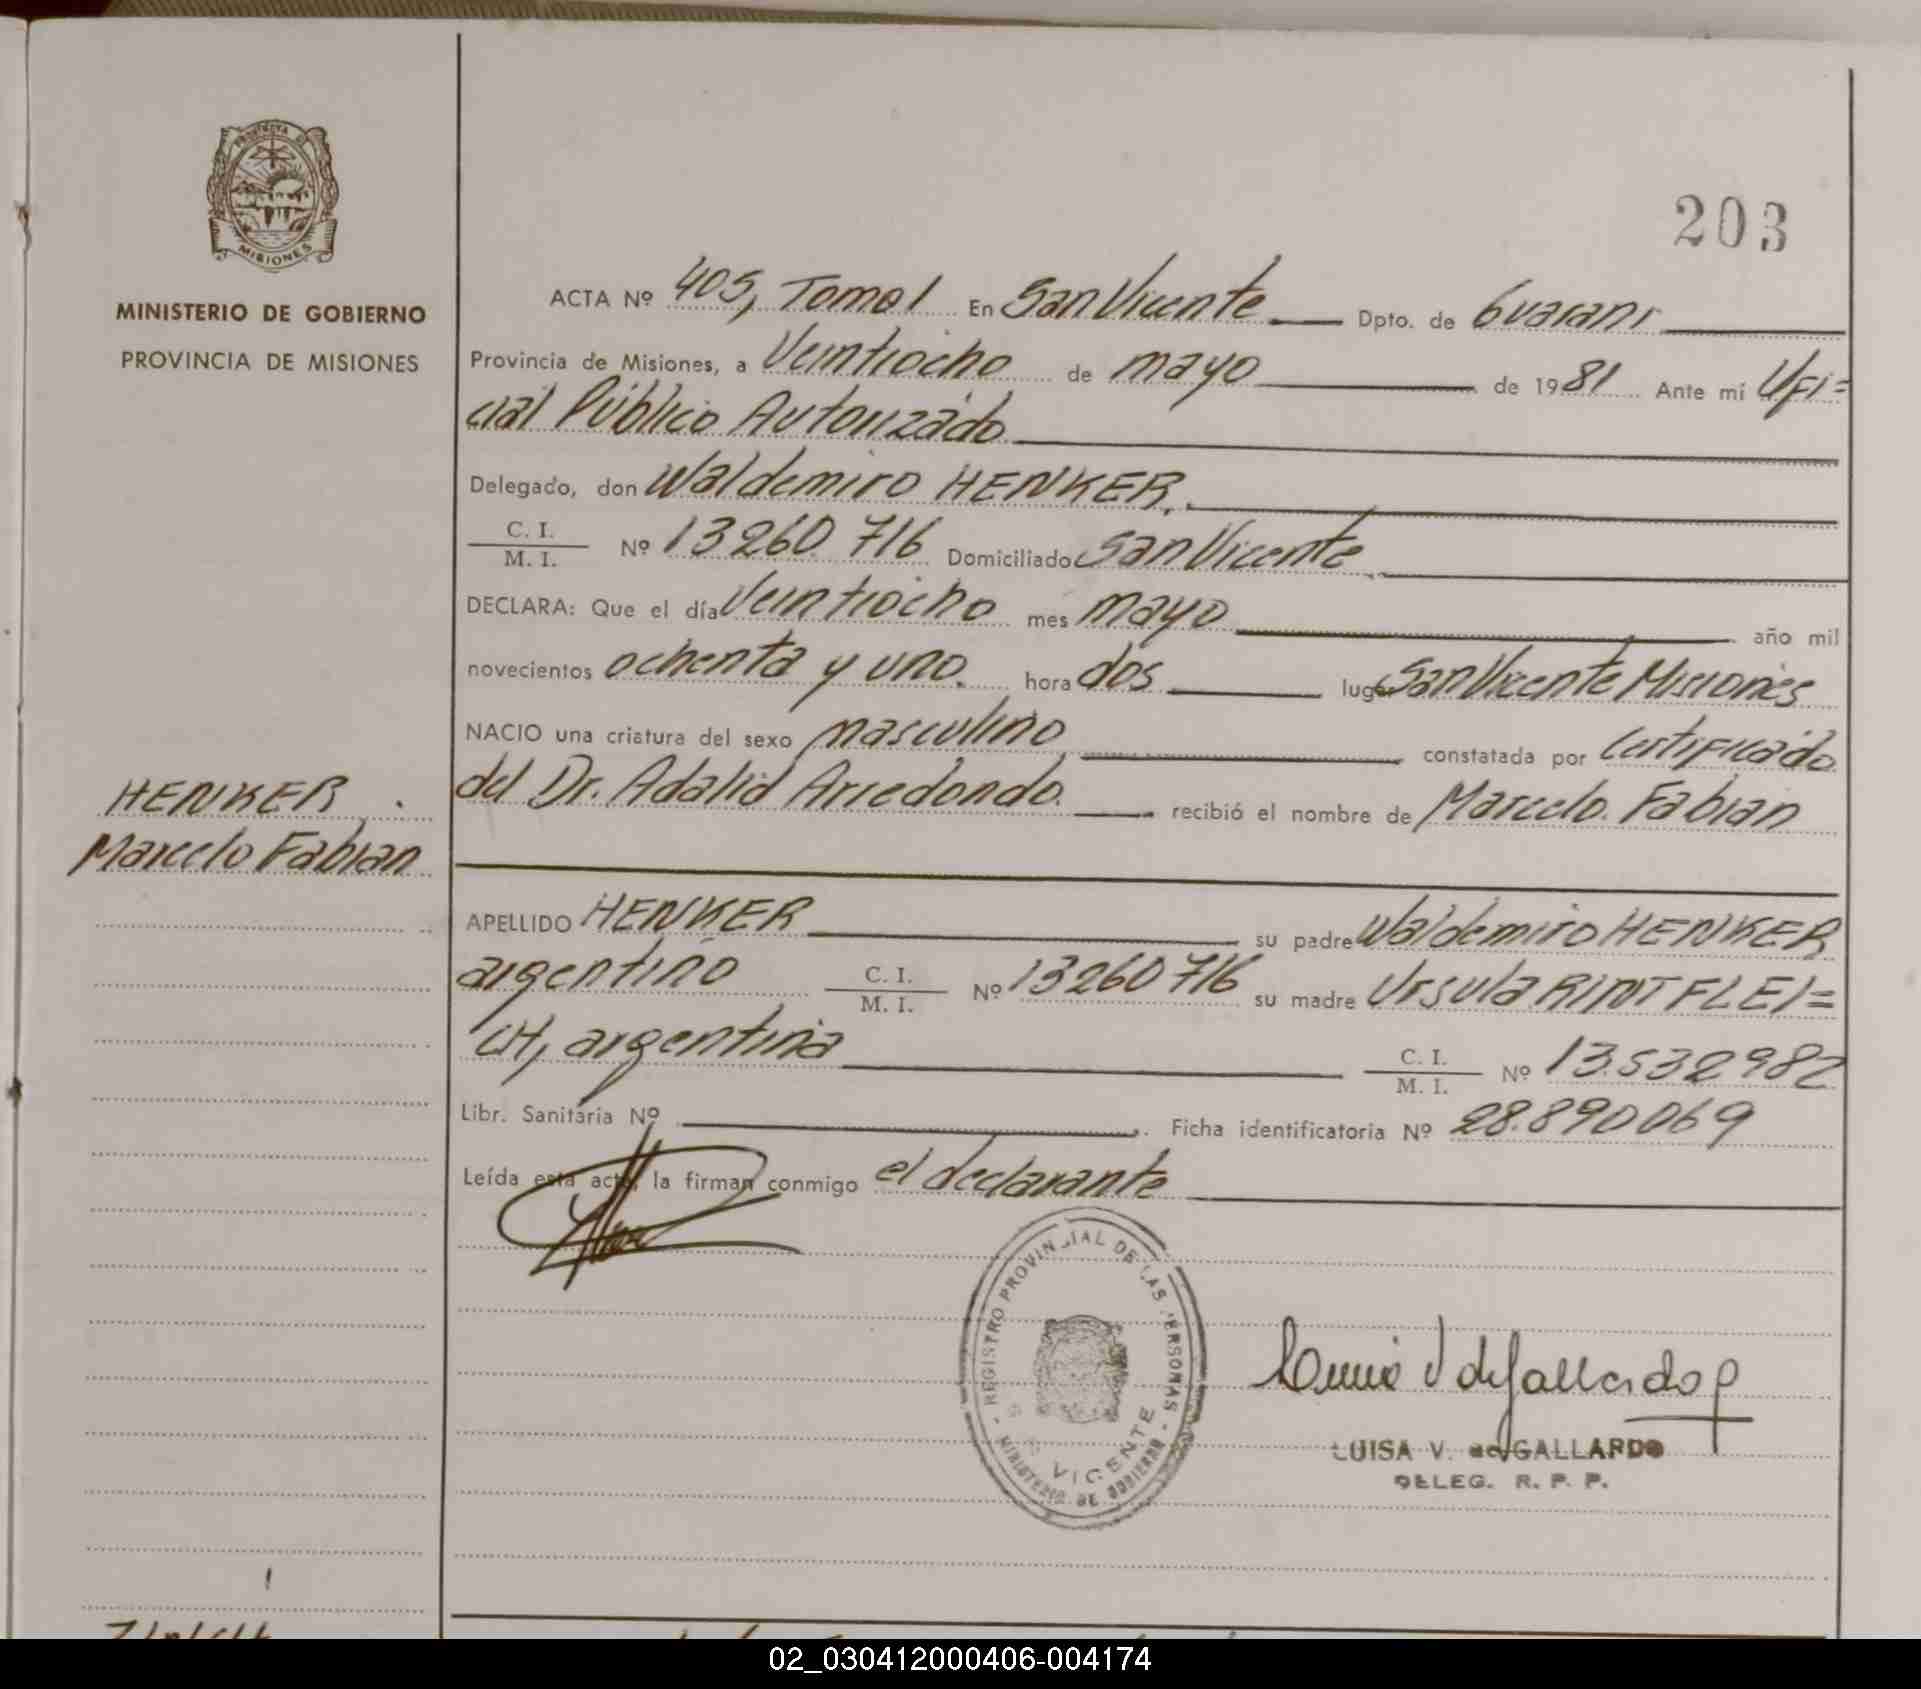 PROVINCIA DE
MISIONES
MINISTERIO DE GOBIERNO
PROVINCIA DE MISIONES
203
ACTA Nº 405, Tomo I En San Vicente Dpto. de Guarani
Provincia de Misiones, a Veintiocho de mayo de 1981 Ante mí Ofi=
cial Público Autorizado
Delegado, don Waldemiro HENKER.
C. I.
M. I.
Nº 13260.716 Domiciliado San Vicente
DECLARA: Que el día Veintiocho mes mayo año mil
novecientos ochenta y uno. hora dos lugar San Vicente Misiones
NACIO una criatura del sexo masculino constatada por Certificado
del Dr. Adalid Arredondo. recibió el nombre de Marcelo Fabian
HENKER
Marcelo Fabian
APELLIDO HENKER su padre Waldemiro HENKER
argentino C. I.
M. I.
Nº 13260716 su madre Ursula RINTFLEI=
CH, argentina C. I.
M. I.
Nº 13.532982
Libr. Sanitaria Nº Ficha identificatoria Nº 28.890069
Leída esta acta, la firman conmigo el declarante
REGISTRO PROVINCIAL DE LAS PERSONAS
MINISTERIO DE GOBIERNO
S. VICENTE
V de Gallardo
LUISA V. de GALLARDO
DELEG. R. P. P.
02_030412000406-004174